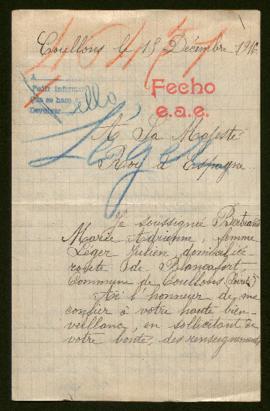 Coullons le 18 Décembre 191
40457
A
Pedir informe
Que se haga
Devolver
Fecho
e.a.e.
A Sa Majesté
Léger
Roy d'Espagne
Je soussignée Bertrand
Marie Adrienne, femme
Léger Julien domicilié
route de Blancafort
Commune de Coullons (Loiret)
Ai l'honneur de me
confier à votre haute bien-
veillance, en sollicitant de
votre bonté, des renseignements